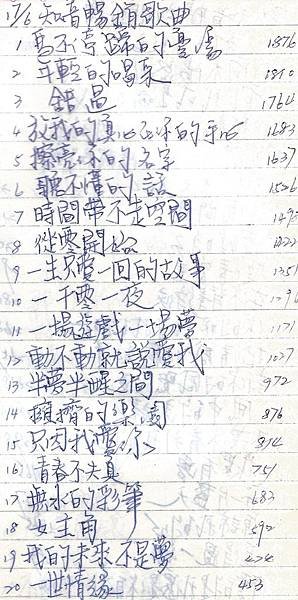 17/6 知音暢銷歌曲
1 馬不停蹄的憂傷 1876
2 年輕的喝采 1810
3 錯過 1764
4 放我的真心在你的手心 1683
5 擦亮你的名字 1637
6 聽不懂的話 1526
7 時間帶不走空間
8 從零開始
9 一生只愛一回的故事 1251
10 一千零一夜
11 一場遊戲一場夢 1171
12 動不動就說愛我 1027
13 半夢半醒之間 972
14 擁擠的樂園 876
15 只因我愛你 814
16 青春不失真 751
17 無水的彩筆 683
18 女主角 592
19 我的未來不是夢
20 一世情緣 453